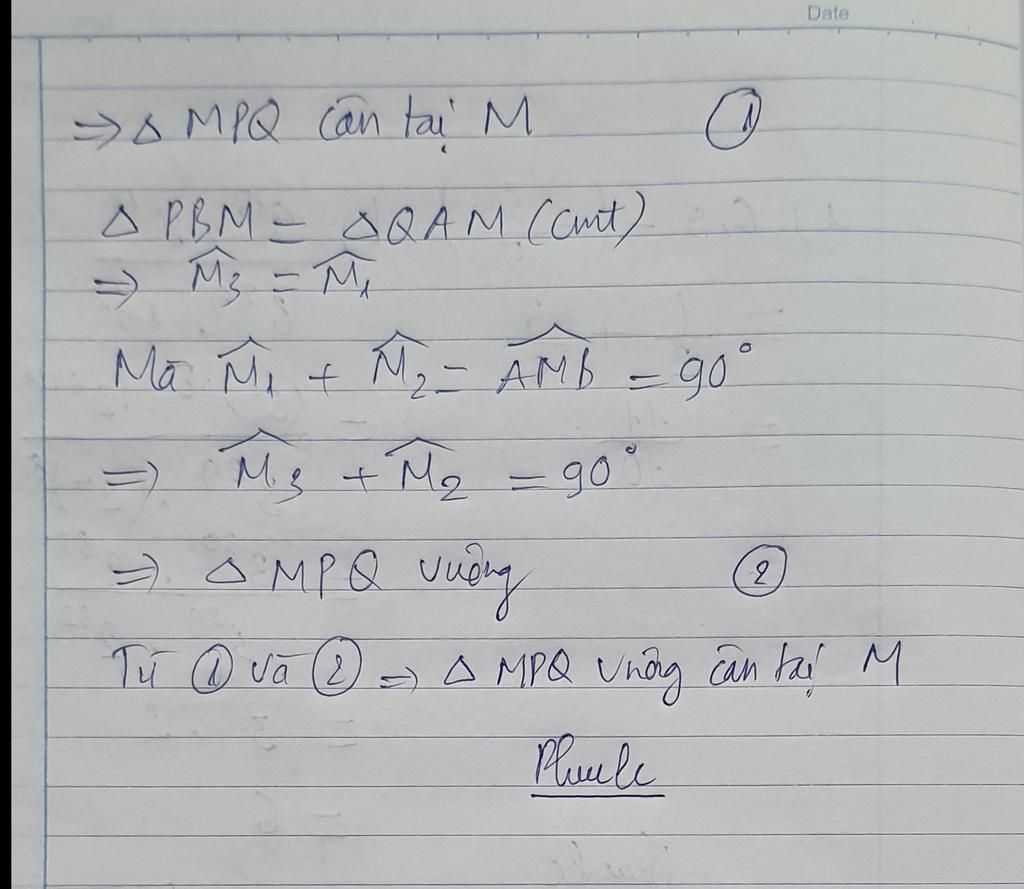 Date
⇒ △ MPQ cân tại M ①
△ PBM = △ QAM (cmt)
⇒ M̂₃ = M̂₁
Mà M̂₁ + M̂₂ = AMB̂ = 90°
⇒ M̂₃ + M̂₂ = 90°
⇒ △ MPQ vuông ②
Từ ① và ② ⇒ △ MPQ vuông cân tại M